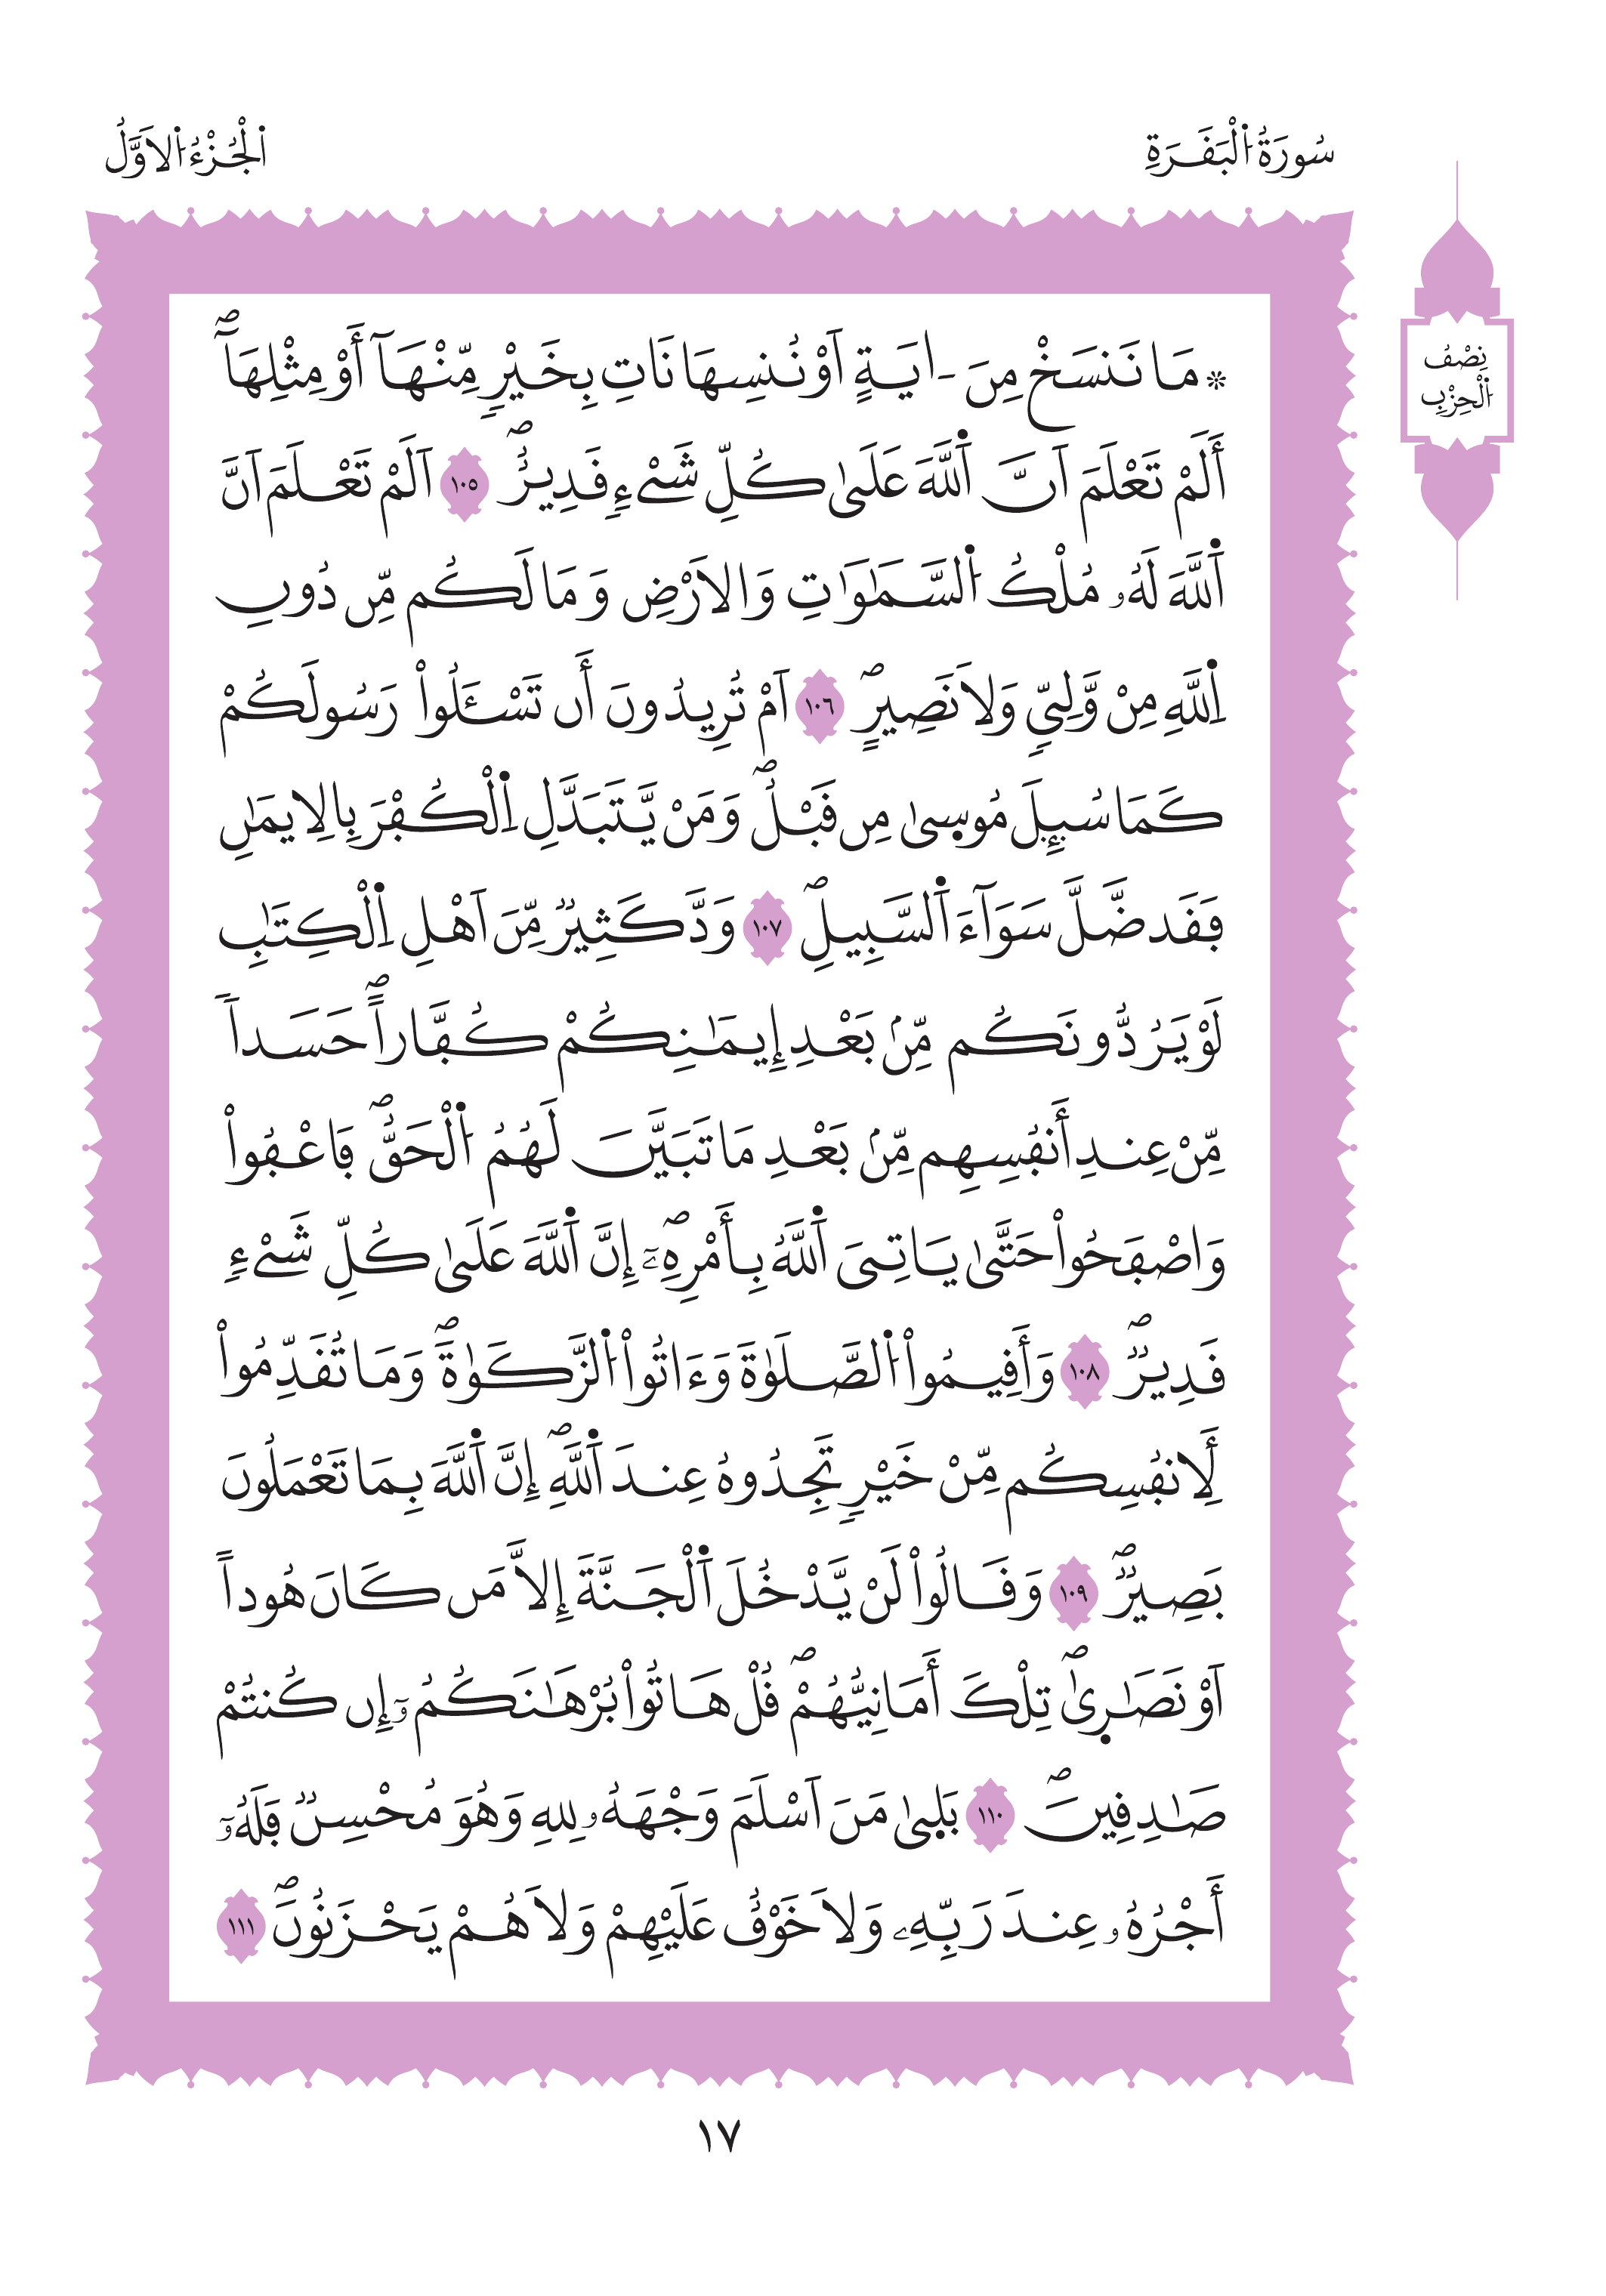 سُورَةُ اُ۬لْبَقَرَةِ
اَ۬لْجُزْءُ اُ۬لَاوَّلُ
نِصْفُ
اُ۬لْحِزْبِ
۞ مَا نَنسَخْ مِنَ ـ اٰيَةٍ اَوْ نُنسِهَا نَاتِ بِخَيْرٖ مِّنْهَآ أَوْ مِثْلِهَآۖ
أَلَمْ تَعْلَمَ اَنَّ اَ۬للَّهَ عَلَىٰ كُلِّ شَےْءٖ قَدِيرٌۖ ١٠٥ اَلَمْ تَعْلَمَ اَنَّ
اَ۬للَّهَ لَهُۥ مُلْكُ اُ۬لسَّمَٰوَٰتِ وَالَارْضِ وَمَا لَكُم مِّن دُونِ
اِ۬للَّهِ مِنْ وَّلِيّٖ وَلَا نَصِيرٍۖ ١٠٦ اَمْ تُرِيدُونَ أَن تَسْـَٔلُواْ رَسُولَكُمْ
كَمَا سُئِلَ مُوس۪ىٰ مِن قَبْلُۖ وَمَنْ يَّتَبَدَّلِ اِ۬لْكُفْرَ بِالِايمَٰنِ
فَقَد ضَّلَّ سَوَآءَ اَ۬لسَّبِيلِۖ ١٠٧ وَدَّ كَثِيرٞ مِّنَ اَهْلِ اِ۬لْكِتَٰبِ
لَوْ يَرُدُّونَكُم مِّنۢ بَعْدِ إِيمَٰنِكُمْ كُفَّاراًۖ حَسَداٗ
مِّنْ عِندِ أَنفُسِهِم مِّنۢ بَعْدِ مَا تَبَيَّنَ لَهُمُ اُ۬لْحَقُّۖ فَاعْفُواْ
وَاصْفَحُواْ حَتَّىٰ يَاتِيَ اَ۬للَّهُ بِأَمْرِهِۦٓۖ إِنَّ اَ۬للَّهَ عَلَىٰ كُلِّ شَےْءٖ
قَدِيرٞۖ ١٠٨ وَأَقِيمُواْ اُ۬لصَّلَوٰةَ وَءَاتُواْ اُ۬لزَّكَوٰةَۖ وَمَا تُقَدِّمُواْ
لِأَنفُسِكُم مِّنْ خَيْرٖ تَجِدُوهُ عِندَ اَ۬للَّهِۖ إِنَّ اَ۬للَّهَ بِمَا تَعْمَلُونَ
بَصِيرٞۖ ١٠٩ وَقَالُواْ لَنْ يَّدْخُلَ اَ۬لْجَنَّةَ إِلَّا مَن كَانَ هُوداً
اَوْ نَصَٰر۪ىٰۖ تِلْكَ أَمَانِيُّهُمْۖ قُلْ هَاتُواْ بُرْهَٰنَكُمُۥٓ إِن كُنتُمْ
صَٰدِقِينَۖ ١١٠ بَل۪ىٰ مَنَ اَسْلَمَ وَجْهَهُۥ لِلهِ وَهُوَ مُحْسِنٞ فَلَهُۥٓ
أَجْرُهُۥ عِندَ رَبِّهِۦ وَلَا خَوْفٌ عَلَيْهِمْ وَلَا هُمْ يَحْزَنُونَۖ ١١١
١٧